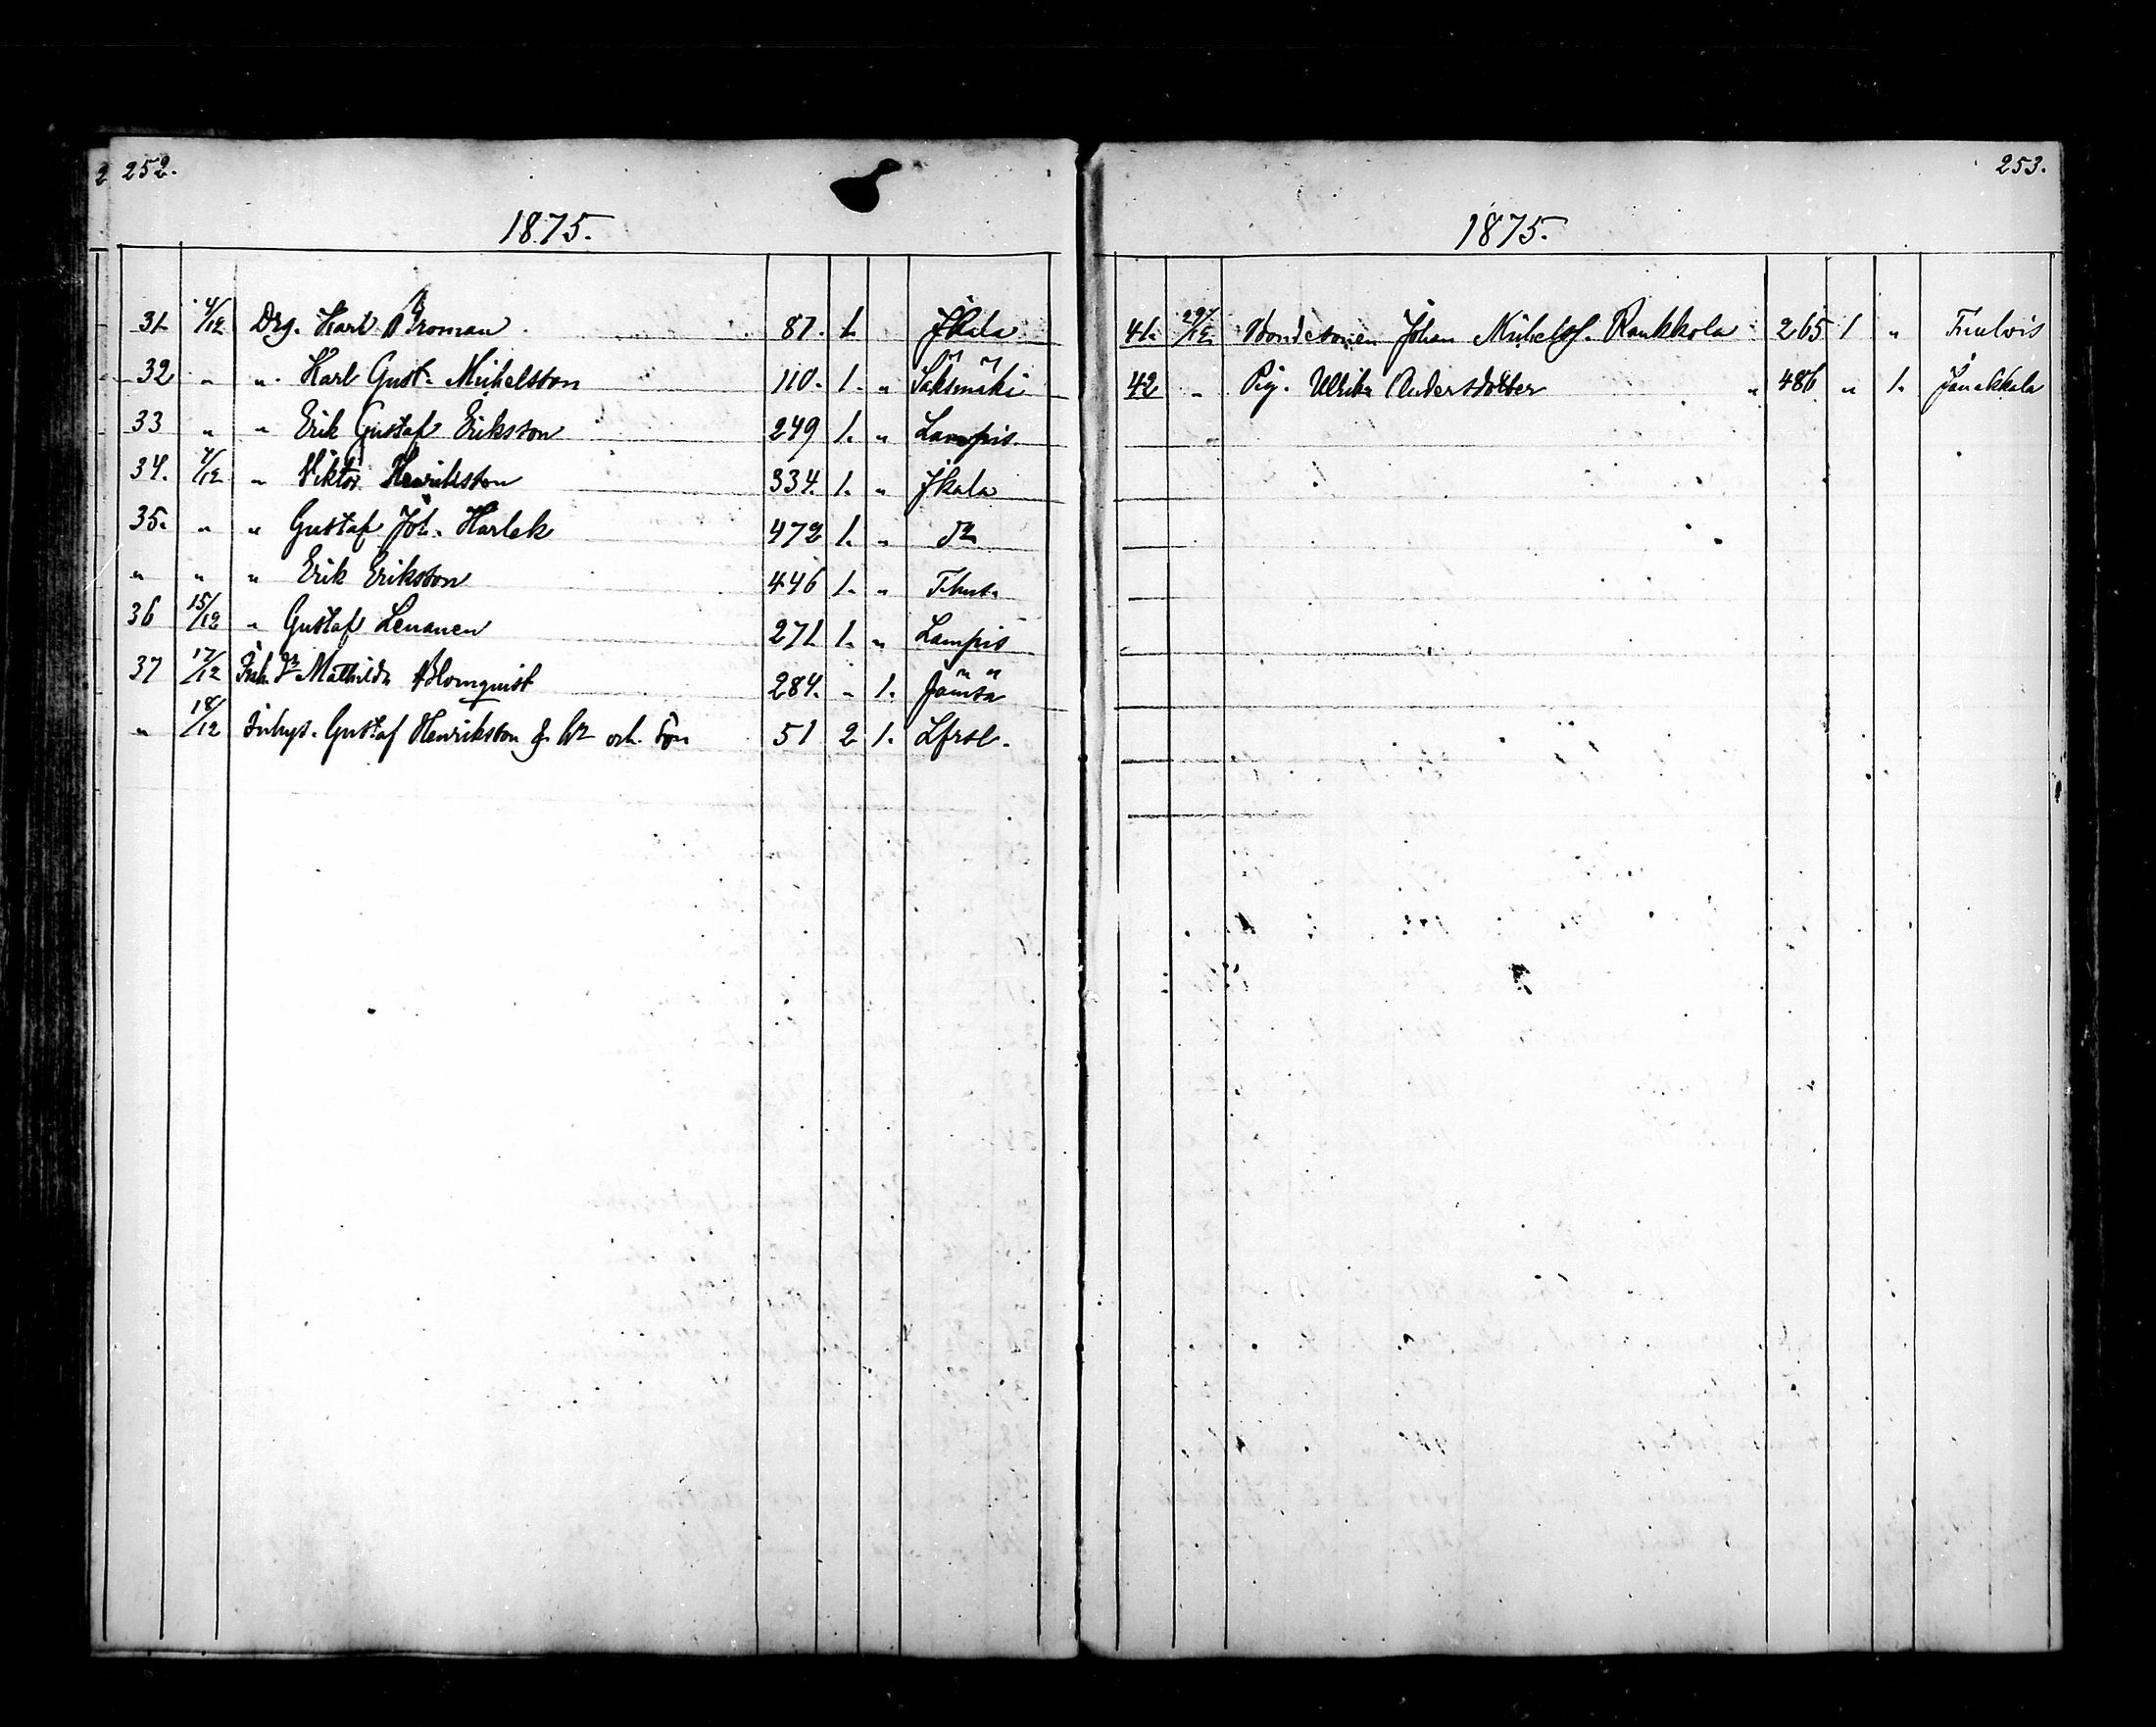 2 252.
1875.
31. 4/12 Drg. Karl Broman 87. 1. Jkala
32 " " Karl Gust. Michelsson 110. 1. " Sääksmäki
33 " " Erik Gustaf Eriksson 249 1. " Lampis
34. 7/12 " Viktor Henriksson 334. 1. " Jkala
35. " " Gustaf Joh. Harlek 472 1. " Do
" " " Erik Eriksson 446 1. "
36 15/12 " Gustaf Lenanen 271 1. " Lampis
37 17/12 Mathilda Blomquist 284. " 1. Jämsä
" 18/12 Inhys. Gustaf Henriksson och Son 51 2 1. Lfrsl.
253.
1875.
41. 29/12 Bondesonen Johan Michelss. Raukkola 265 1 " Tuulois
42 " Pig. Ulrika Andersdotter " 486 " 1. Janakkala